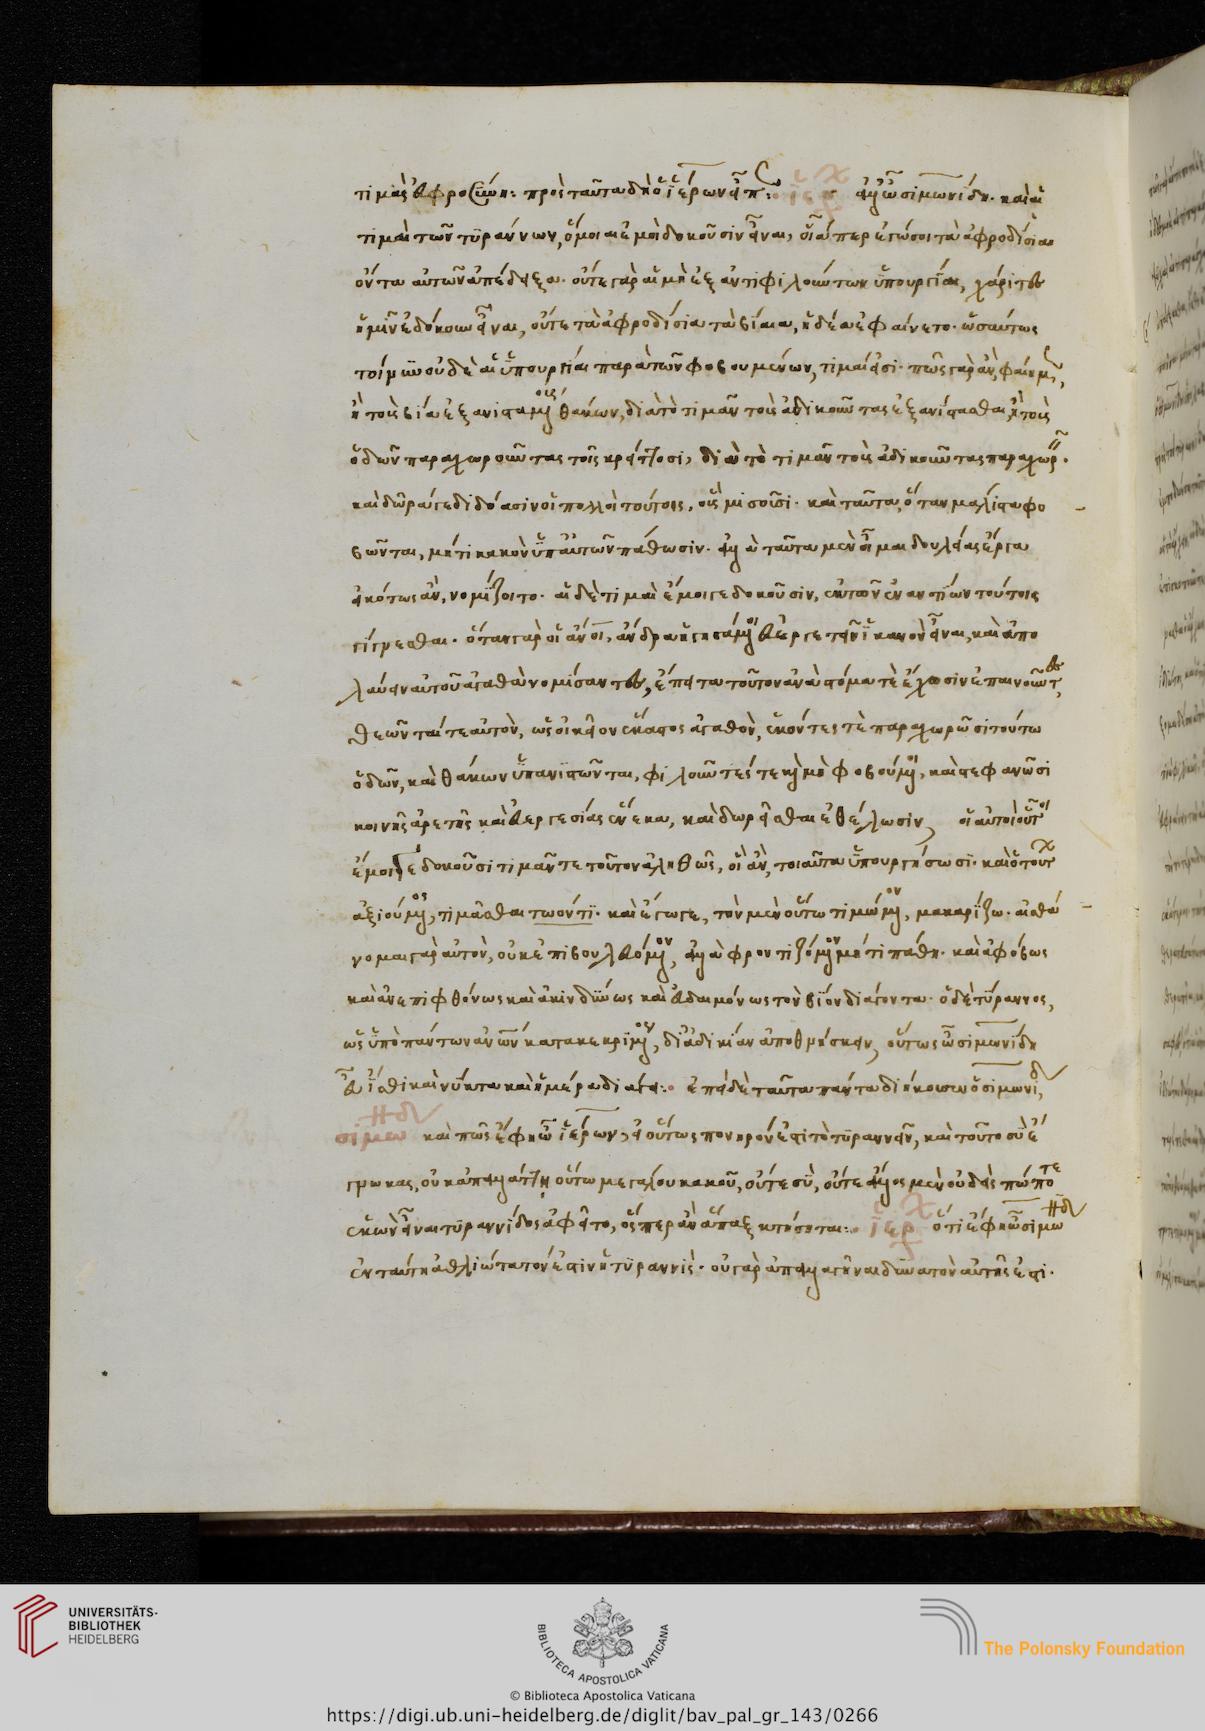 τιμὰς εὐφροσύνη: πρὸς ταῦτα δὴ ὁ ἱέρων εἶπ: ἱερ ἀλλ' ὦ σιμωνίδη. καὶ αἱ
τιμαὶ τῶν τυράννων, ὅμοιαι ἐμοὶ δοκοῦσιν εἶναι, οἷά περ ἐγώ σοι τὰ ἀφροδίσια
ὄντα αὐτῶν ἀπέδειξα. οὔτε γὰρ αἱ μὴ ἐξ ἀντιφιλούντων ὑπουργίαι, χάριτες
ἡμῖν ἐδόκουν εἶναι, οὔτε τὰ ἀφροδίσια τὰ βίαια, ἡδέα ἐφαίνετο. ὡσαύτως
τοίνυν οὐδὲ αἱ ὑπουργίαι παρὰ τῶν φοβουμένων, τιμαί εἰσι. πῶς γὰρ ἂν φαίημεν,
ἢ τοὺς βία ἐξανισταμένους θάκων, διὰ τὸ τιμᾶν τοὺς ἀδικοῦντας ἐξανίστασθαι, ἢ τοὺς
ὁδῶν παραχωροῦντας τοῖς κρείττοσι, διὰ τὸ τιμᾶν τοὺς ἀδικοῦντας παραχωρεῖν.
καὶ δῶρά γε διδόασιν οἱ πολλοὶ τούτοις, οὓς μισοῦσι. καὶ ταῦτα, ὅταν μάλιστα φο
βῶνται, μή τι κακὸν ὑπ' αὐτῶν πάθωσιν. ἀλλὰ ταῦτα μὲν οἶμαι δουλείας ἔργα
εἰκότως ἂν, νομίζοιτο. αἱ δὲ τιμαὶ ἔμοιγε δοκοῦσιν, ἐκ τῶν ἐναντίων τούτοις
γίγνεσθαι. ὅταν γὰρ οἱ ἄνοι, ἄνδρα ἡγησάμενοι εὐεργετεῖν ἱκανὸν εἶναι, καὶ ἀπο
λαύειν αὐτοῦ ἀγαθὰ νομίσαντες, ἔπειτα τοῦτον ἀνὰ στόμα τὲ ἔχωσιν ἐπαινοῦντες,
θεῶνταί τε αὐτὸν, ὡς οἰκεῖον ἕκαστος ἀγαθὸν, ἑκόντες τὲ παραχωρῶσι τούτω
ὁδῶν, καὶ θάκων ὑπανιστῶνται, φιλοῦντές τε καὶ μὴ φοβούμενοι, καὶ στεφανῶσι
κοινῆς ἀρετῆς καὶ εὐεργεσίας ἕνεκα, καὶ δωρεῖσθαι ἐθέλωσιν, οἱ αὐτοὶ οὗτοι
ἔμοιγε δοκοῦσι τιμᾶν τε τοῦτον ἀληθῶς, οἳ ἂν, τοιαῦτα ὑπουργήσωσι. καὶ ὁ τούτων
ἀξιούμενος, τιμᾶσθαι τω ὄντι. καὶ ἔγωγε, τὸν μὲν οὕτω τιμώμενον, μακαρίζω. αἰσθά
νομαι γὰρ αὐτὸν, οὐκ ἐπιβουλευόμενον, ἀλλὰ φροντιζόμενον μή τι πάθη. καὶ ἀφόβως
καὶ ἀνεπιφθόνως καὶ ἀκινδύνως καὶ εὐδαιμόνως τὸν βίον διάγοντα. ὁ δὲ τύραννος,
ὡς ὑπὸ πάντων ἀνῶν κατακεκριμένος, δι' ἀδικίαν ἀποθνήσκειν, οὕτως ὦ σιμωνίδη
εὖ ἴσθι καὶ νύκτα καὶ ἡμέραν διάγει: ἐπεὶ δὲ ταῦτα πάντα διήκουσεν ὁ σιμωνίδ,
σιμων καὶ πῶς ἔφη ὦ ἱέρων, εἰ οὕτως πονηρόν ἐστι τὸ τυραννεῖν, καὶ τοῦτο σὺ ἔ
γνωκας, οὐκ ἀπαλλάττῃ οὕτω μεγάλου κακοῦ, οὔτε σὺ, οὔτε ἄλλος μὲν οὐδεὶς πώποτε
ἑκὼν εἶναι τυραννίδος ἀφεῖτο, ὅς περ ἂν ἅπαξ κτήσηται: ἱερ ὅτι ἔφη ὦ σιμω
ἐν ταύτη ἀθλιώτατόν ἐστιν ἡ τυραννὶς. οὐ γὰρ ἀπαλλαγῆναι δυνατὸν αὐτῆς ἐστι.
UNIVERSITÄTS-
BIBLIOTHEK
HEIDELBERG
BIBLIOTECA APOSTOLICA VATICANA
The Polonsky Foundation
© Biblioteca Apostolica Vaticana
https://digi.ub.uni-heidelberg.de/diglit/bav_pal_gr_143/0266